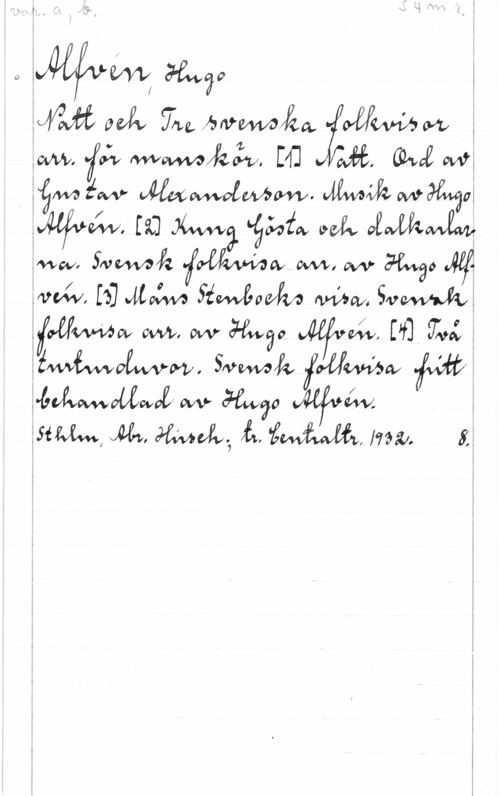 var. a, b.
54 m. r.
Alfvén, Hugo
Natt och Tre svenska folkvisor
arr. för manskör. [1] Natt. Ord av
Gustav Alexanderson. Musik av Hugo
Alfvén. [2] Kung Gösta och dalkarlar-
na. Svensk folkvisa arr. av Hugo Alf-
vén. [3] Måns Stenbocks visa. Svensk
folkvisa arr. av Hugo Alfvén. [4] Två
turturduvor. Svensk folkvisa fritt
behandlad av Hugo Alfvén.
Sthlm, Abr. Hirsch; tr. Centraltr. 1932. 8.